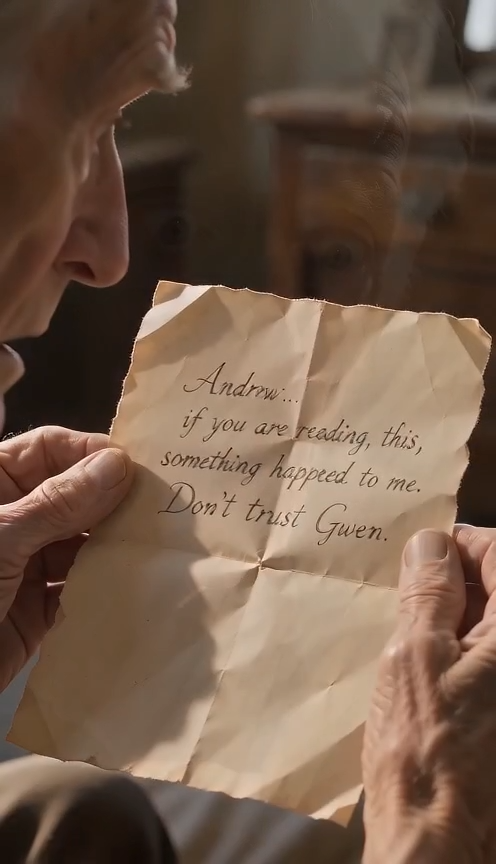 Andrw...
if you are reading, this,
something happeed to me.
Don't trust Gwen.